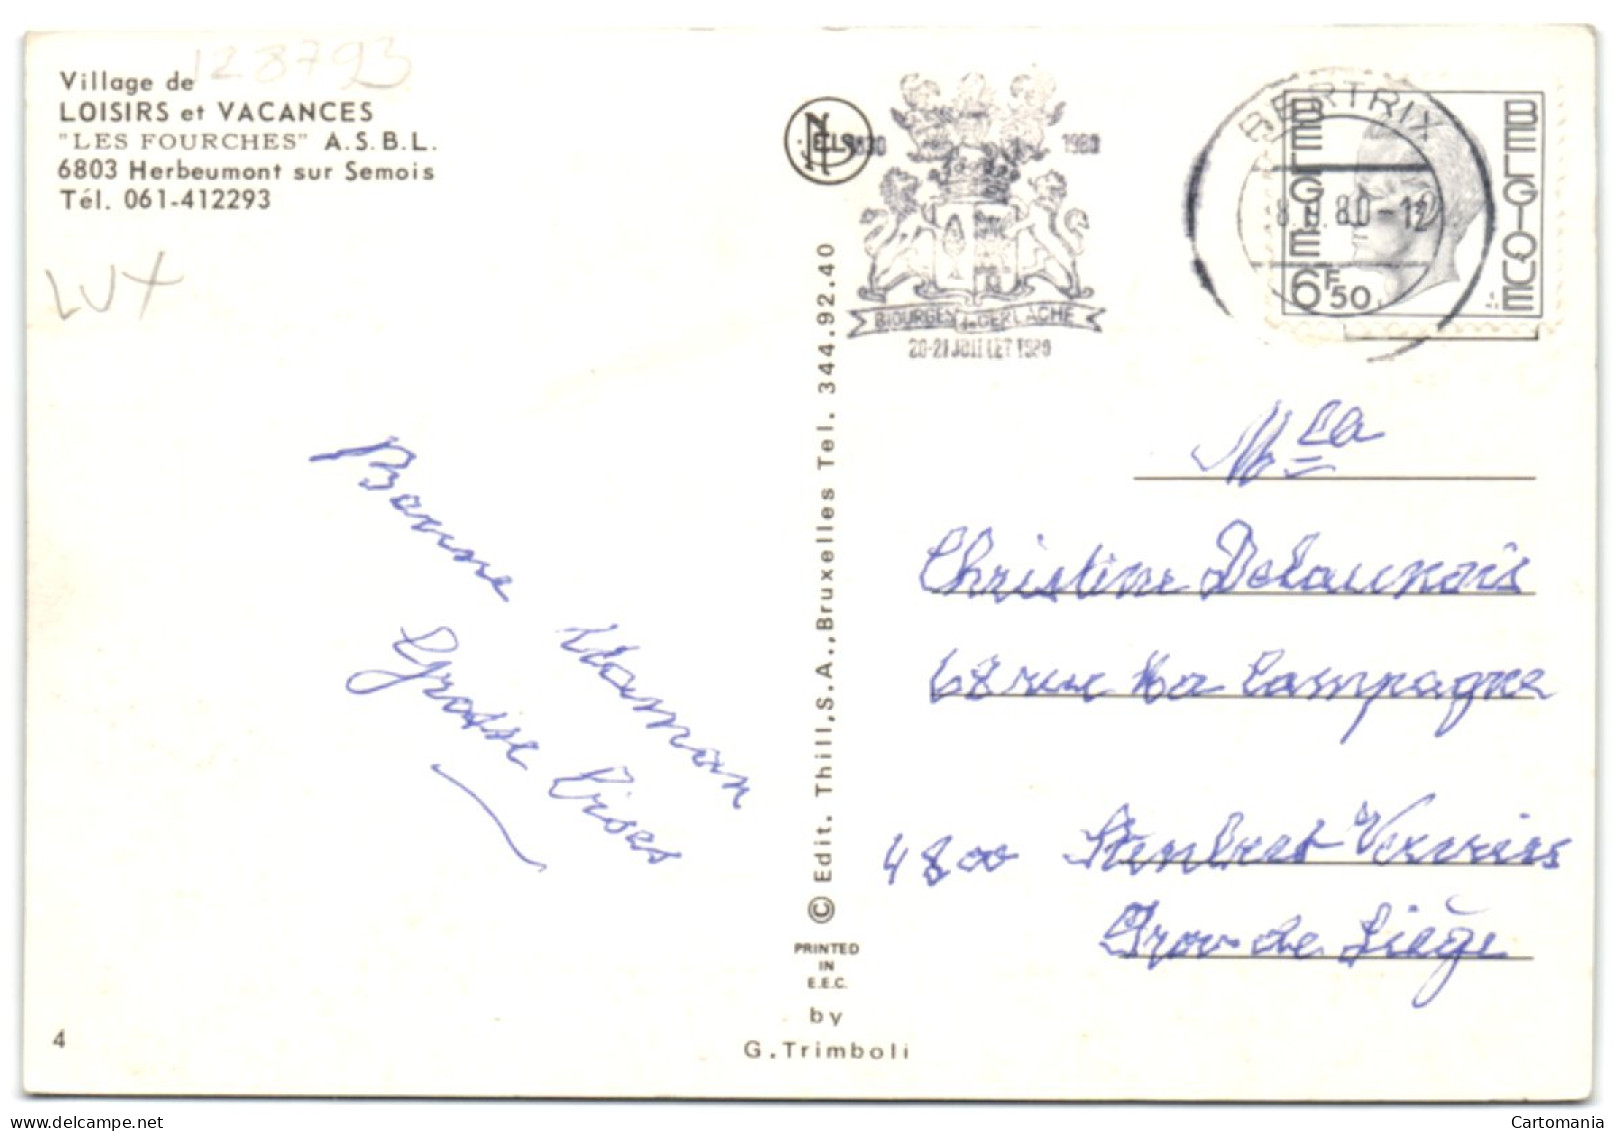 128793
Village de
LOISIRS et VACANCES
"LES FOURCHES" A.S.B.L.
6803 Herbeumont sur Semois
Tél. 061-412293
LUX
NELS
1830 1980
BIOURGE - GERLACHE
20-21 JUILLET 1980
BERTRIX
8. 80-12
BELGIE
BELGIQUE
6F50
Bonne Maman
Grosse Bises
© Edit. Thill, S.A., Bruxelles Tel. 344.92.40
PRINTED
IN
E.E.C.
by
G. Trimboli
4
Christine Delaunois
68 rue La Campagne
4800 Stenbert Verviers
Prov de Liège
Cartomania